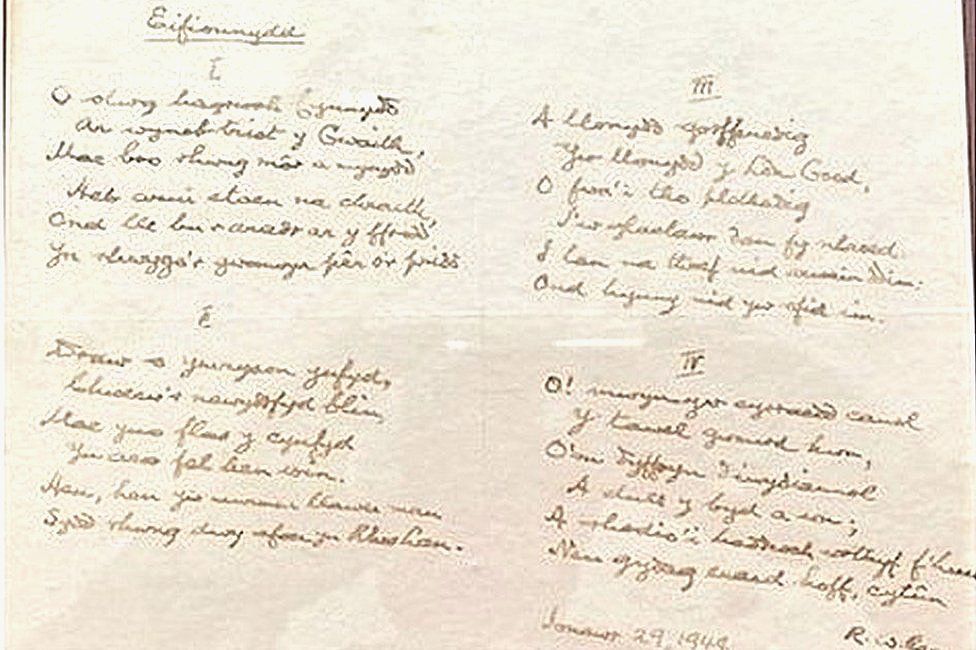 Eifionydd
I
O olwg hagrwch Cynnydd
Ar wyneb trist y Gwaith,
Mae bro rhwng môr a mynydd
Heb arni staen na chraith,
Ond lle bu'r aradr ar y ffridd
Yn rhwygo'r gwanwyn pêr o'r pridd.
Draw o ymryson ynfyd,
Chwerw'r newyddfyd blin,
Mae yno flas y cynfyd
Yn aros fel hen win.
Hen, hen yw murmur llawer man
Sydd rhwng dwy afon yn Rhoslan.
III
A llonydd gorffenedig
Yw llonydd y Lôn Goed,
O fwa'i tho plethedig
I'w glaslawr dan fy nhroed.
I lan na thref nid arwain ddim.
Ond hynny nid yw ofid im.
IV
O! mwyn yw cyrraedd canol
Y tawel gwmwd hwn,
O'm dyffryn diwydiannol
A dull y byd a wn;
A rhodio'i heddwch wrthyf f'hun
Neu gydag enaid hoff, cytûn
Ionawr 29, 1949
R. W.